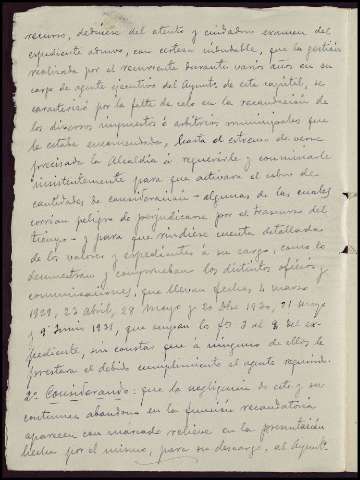 recurso, dedúcese del atento y cuidadoso examen del
expediente admvo, con certeza indudable, que la gestión
realizada por el recurrente durante varios años en su
cargo de agente ejecutivo del Ayunto. de esta capital, se
caracterizó por la falta de celo en la recaudación de
los diversos impuestos ó arbitrios municipales que
le estaba encomendada, hasta el extremo de verse
precisada la Alcaldía á requerirle y conminarle
insistentemente para que activara el cobro de
cantidades de consideración - algunas de las cuales
corrían peligro de perjudicarse por el trascurso del
tiempo - y para que rindiese cuenta detallada
de los valores y expedientes á su cargo, como lo
demuestran y comprueban los distintos oficios y
comunicaciones, que llevan fechas 4 marzo
1929, 23 abril, 28 Mayo y 20 Dbre 1930, 21 Mayo
y 9 Junio 1931, que ocupan los fos 3 al 8 del ex-
pediente, sin constar que á ninguno de ellos le
prestara el debido cumplimiento el agente requerido.
2º Considerando: que la negligencia de este y su
contumaz abandono en la función recaudatoria
aparecen con marcado relieve en la presentación
hecha por el mismo, para su descargo, al Ayunto.